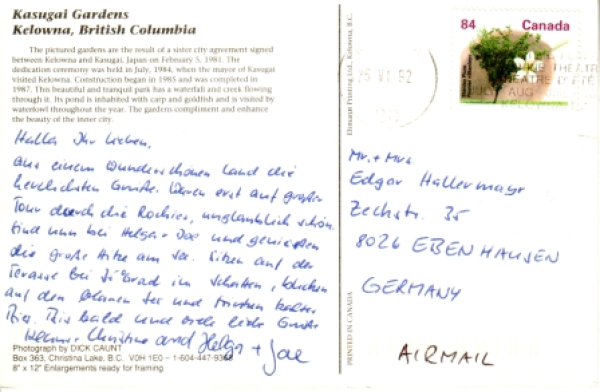 Kasugai Gardens
Kelowna, British Columbia
The pictured gardens are the result of a sister city agreement signed
between Kelowna and Kasugai, Japan on February 5, 1981. The
dedication ceremony was held in July, 1984, when the mayor of Kasugai
visited Kelowna. Construction began in 1985 and was completed in
1987. This beautiful and tranquil park has a waterfall and creek flowing
through it. Its pond is inhabited with carp and goldfish and is visited by
waterfowl throughout the year. The gardens compliment and enhance
the beauty of the inner city.
Hallo Ihr Lieben,
aus einem wunderschönen Land die
herzlichsten Grüße. Waren erst auf großer
Tour durch die Rockies, unglaublich schön.
Sind nun bei Helga + Joe und genießen
die große Hitze am See. Sitzen auf der
Terasse bei grad im Schatten, blicken
auf den blauen See und trinken kaltes
Bier. Bis bald und viele liebe Grüße
Christine and Helga + Joe
Photograph by DICK CAUNT
Box 363, Christina Lake, B.C. V0H 1E0 - 1-604-447-93
8" x 12" Enlargements ready for framing
Ehmann Printing Ltd., Kelowna, B.C.
PRINTED IN CANADA
84 Canada
26 VI 92
THEATRE
THEATRE D'ÉTÉ
AUG
Mr. + Mrs
Edgar Hallermayr
Zechstr. 35
8026 EBENHAUSEN
GERMANY
AIRMAIL